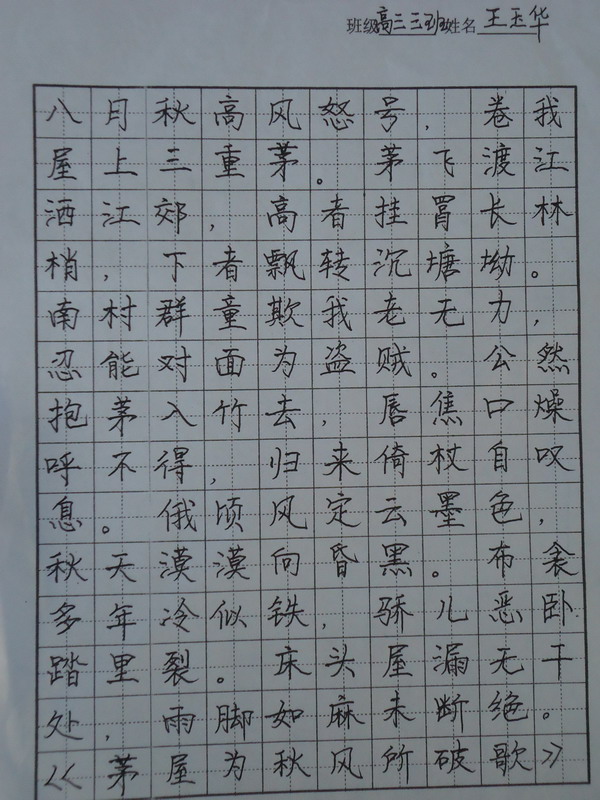 班级高三三班姓名王玉华
八月秋高风怒号,卷我
屋上三重茅。茅飞渡江
洒江郊,高者挂罥长林
梢,下者飘转沉塘坳。
南村群童欺我老无力,
忍能对面为盗贼。公然
抱茅入竹去,唇焦口燥
呼不得,归来倚杖自叹
息。俄顷风定云墨色,
秋天漠漠向昏黑。布衾
多年冷似铁,骄儿恶卧
踏里裂。床头屋漏无干
处,雨脚如麻未断绝。
《茅屋为秋风所破歌》